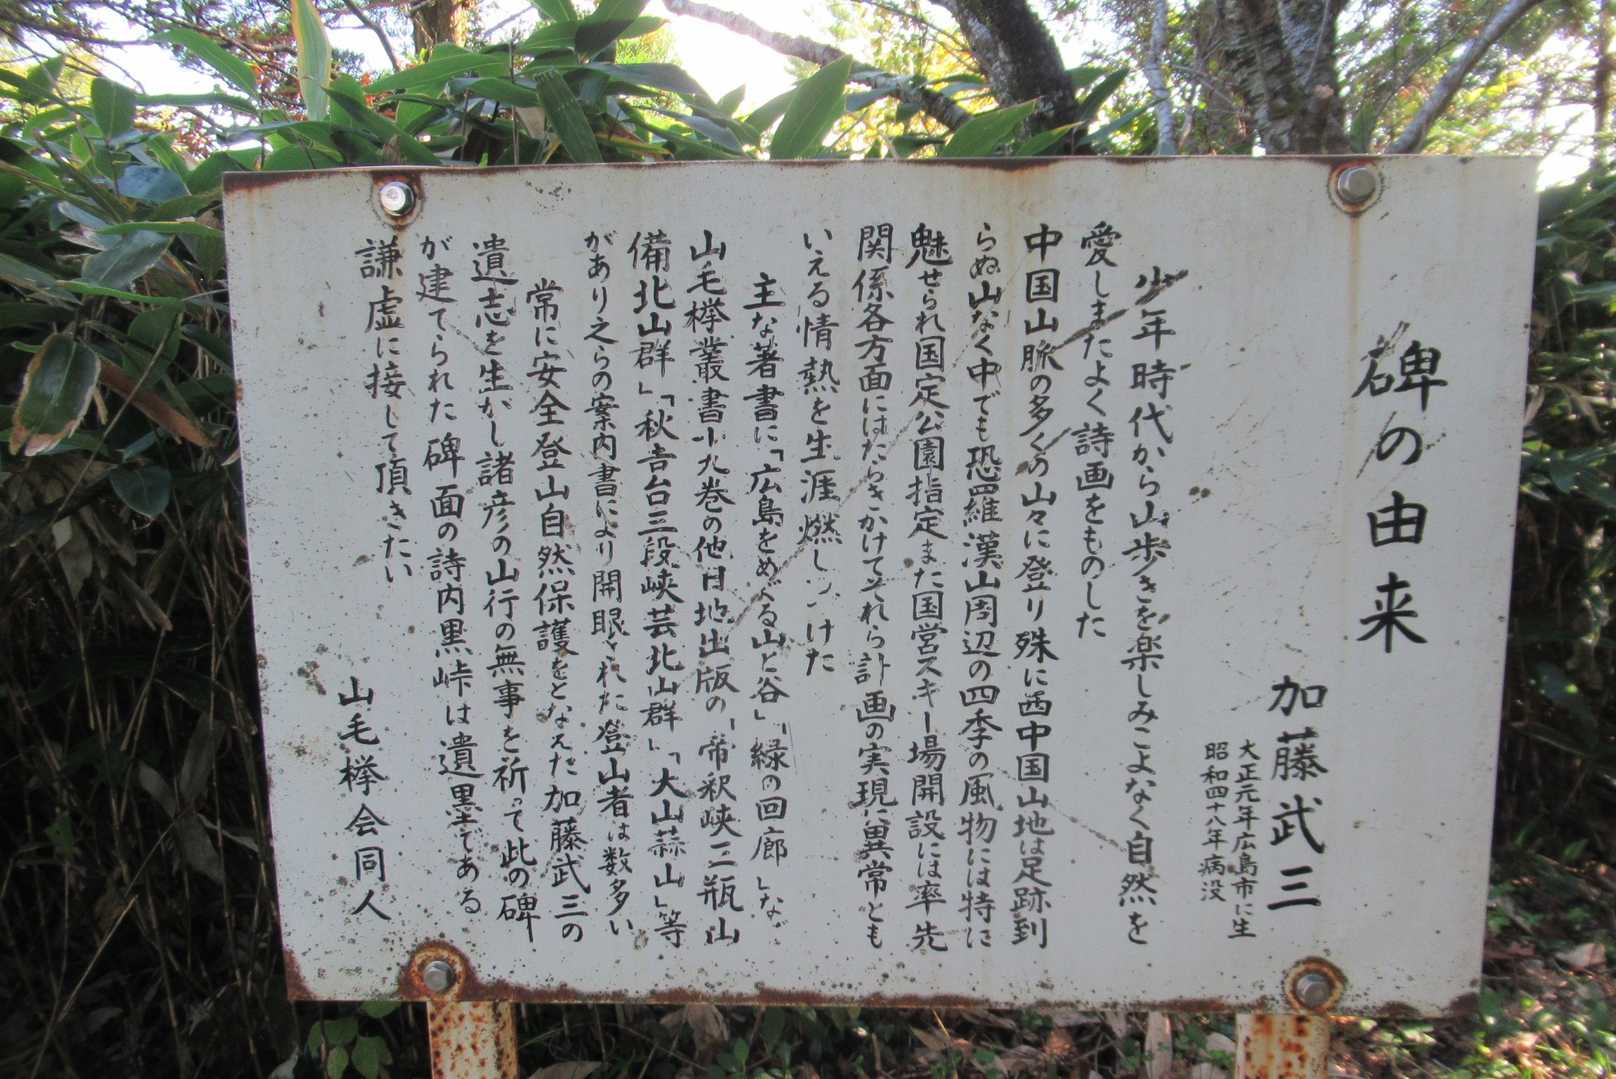 碑の由来
加藤武三
大正元年広島市に生
昭和四十八年病没
少年時代から山歩きを楽しみこよなく自然を
愛しまたよく詩画をものした
中国山脈の多くの山々に登り殊に西中国山地は足跡到
らぬ山なく中でも恐羅漢山周辺の四季の風物には特に
魅せられ国定公園指定また国営スキー場開設には率先
関係各方面にはたらきかけてそれら計画の実現に異常とも
いえる情熱を生涯燃しつけた
主な著書に「広島をめぐる山と谷」「緑の回廊」など
山毛欅叢書十九巻の他日地出版の「帝釈峡三瓶山
備北山群」「秋吉台三段峡芸北山群」「大山蒜山」等
があり之らの案内書により開眼された登山者は数多い
常に安全登山自然保護をとなえた加藤武三の
遺志を生かし諸彦の山行の無事を祈って此の碑
が建てられた碑面の詩内黒峠は遺墨である
謙虚に接して頂きたい
山毛欅会同人